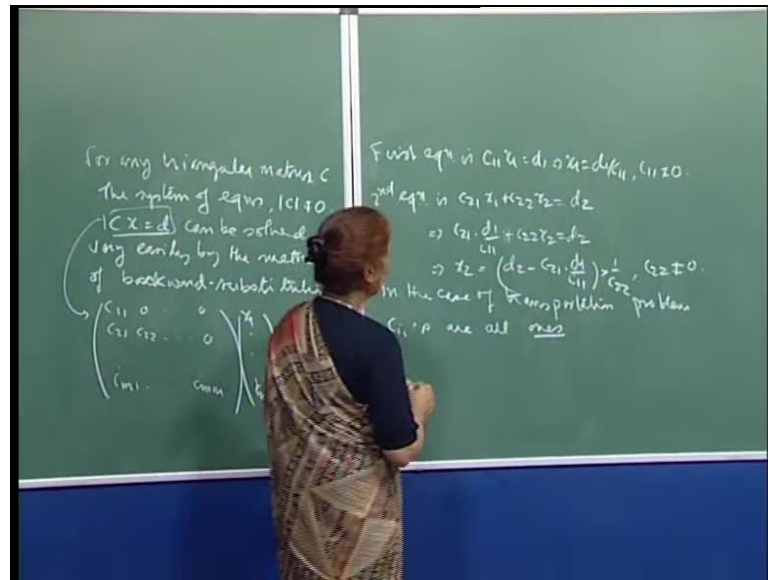 For any triangular matrix C
The system of eqns, |C| ≠ 0
Cx = d can be solved
very easily by the
of backward-substi
( C11 0 . . 0 ) ( x1
C21 C22 . . . 0
Cm1 . . . Cmm
First eqn. is C11 x1 = d1 ⇒ x1 = d1/C11, C11 ≠ 0.
2nd eqn. is C21 x1 + C22 x2 = d2
⇒ C21 · d1/C11 + C22 x2 = d2
⇒ x2 = (d2 - C21 · d1/C11) × 1/C22, C22 ≠ 0.
In the case of transportation problem
are all ones